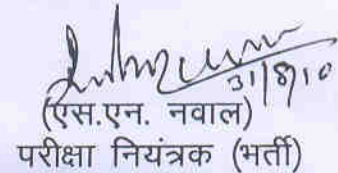 31/8/10
(एस.एन. नवाल)
परीक्षा नियंत्रक (भर्ती)